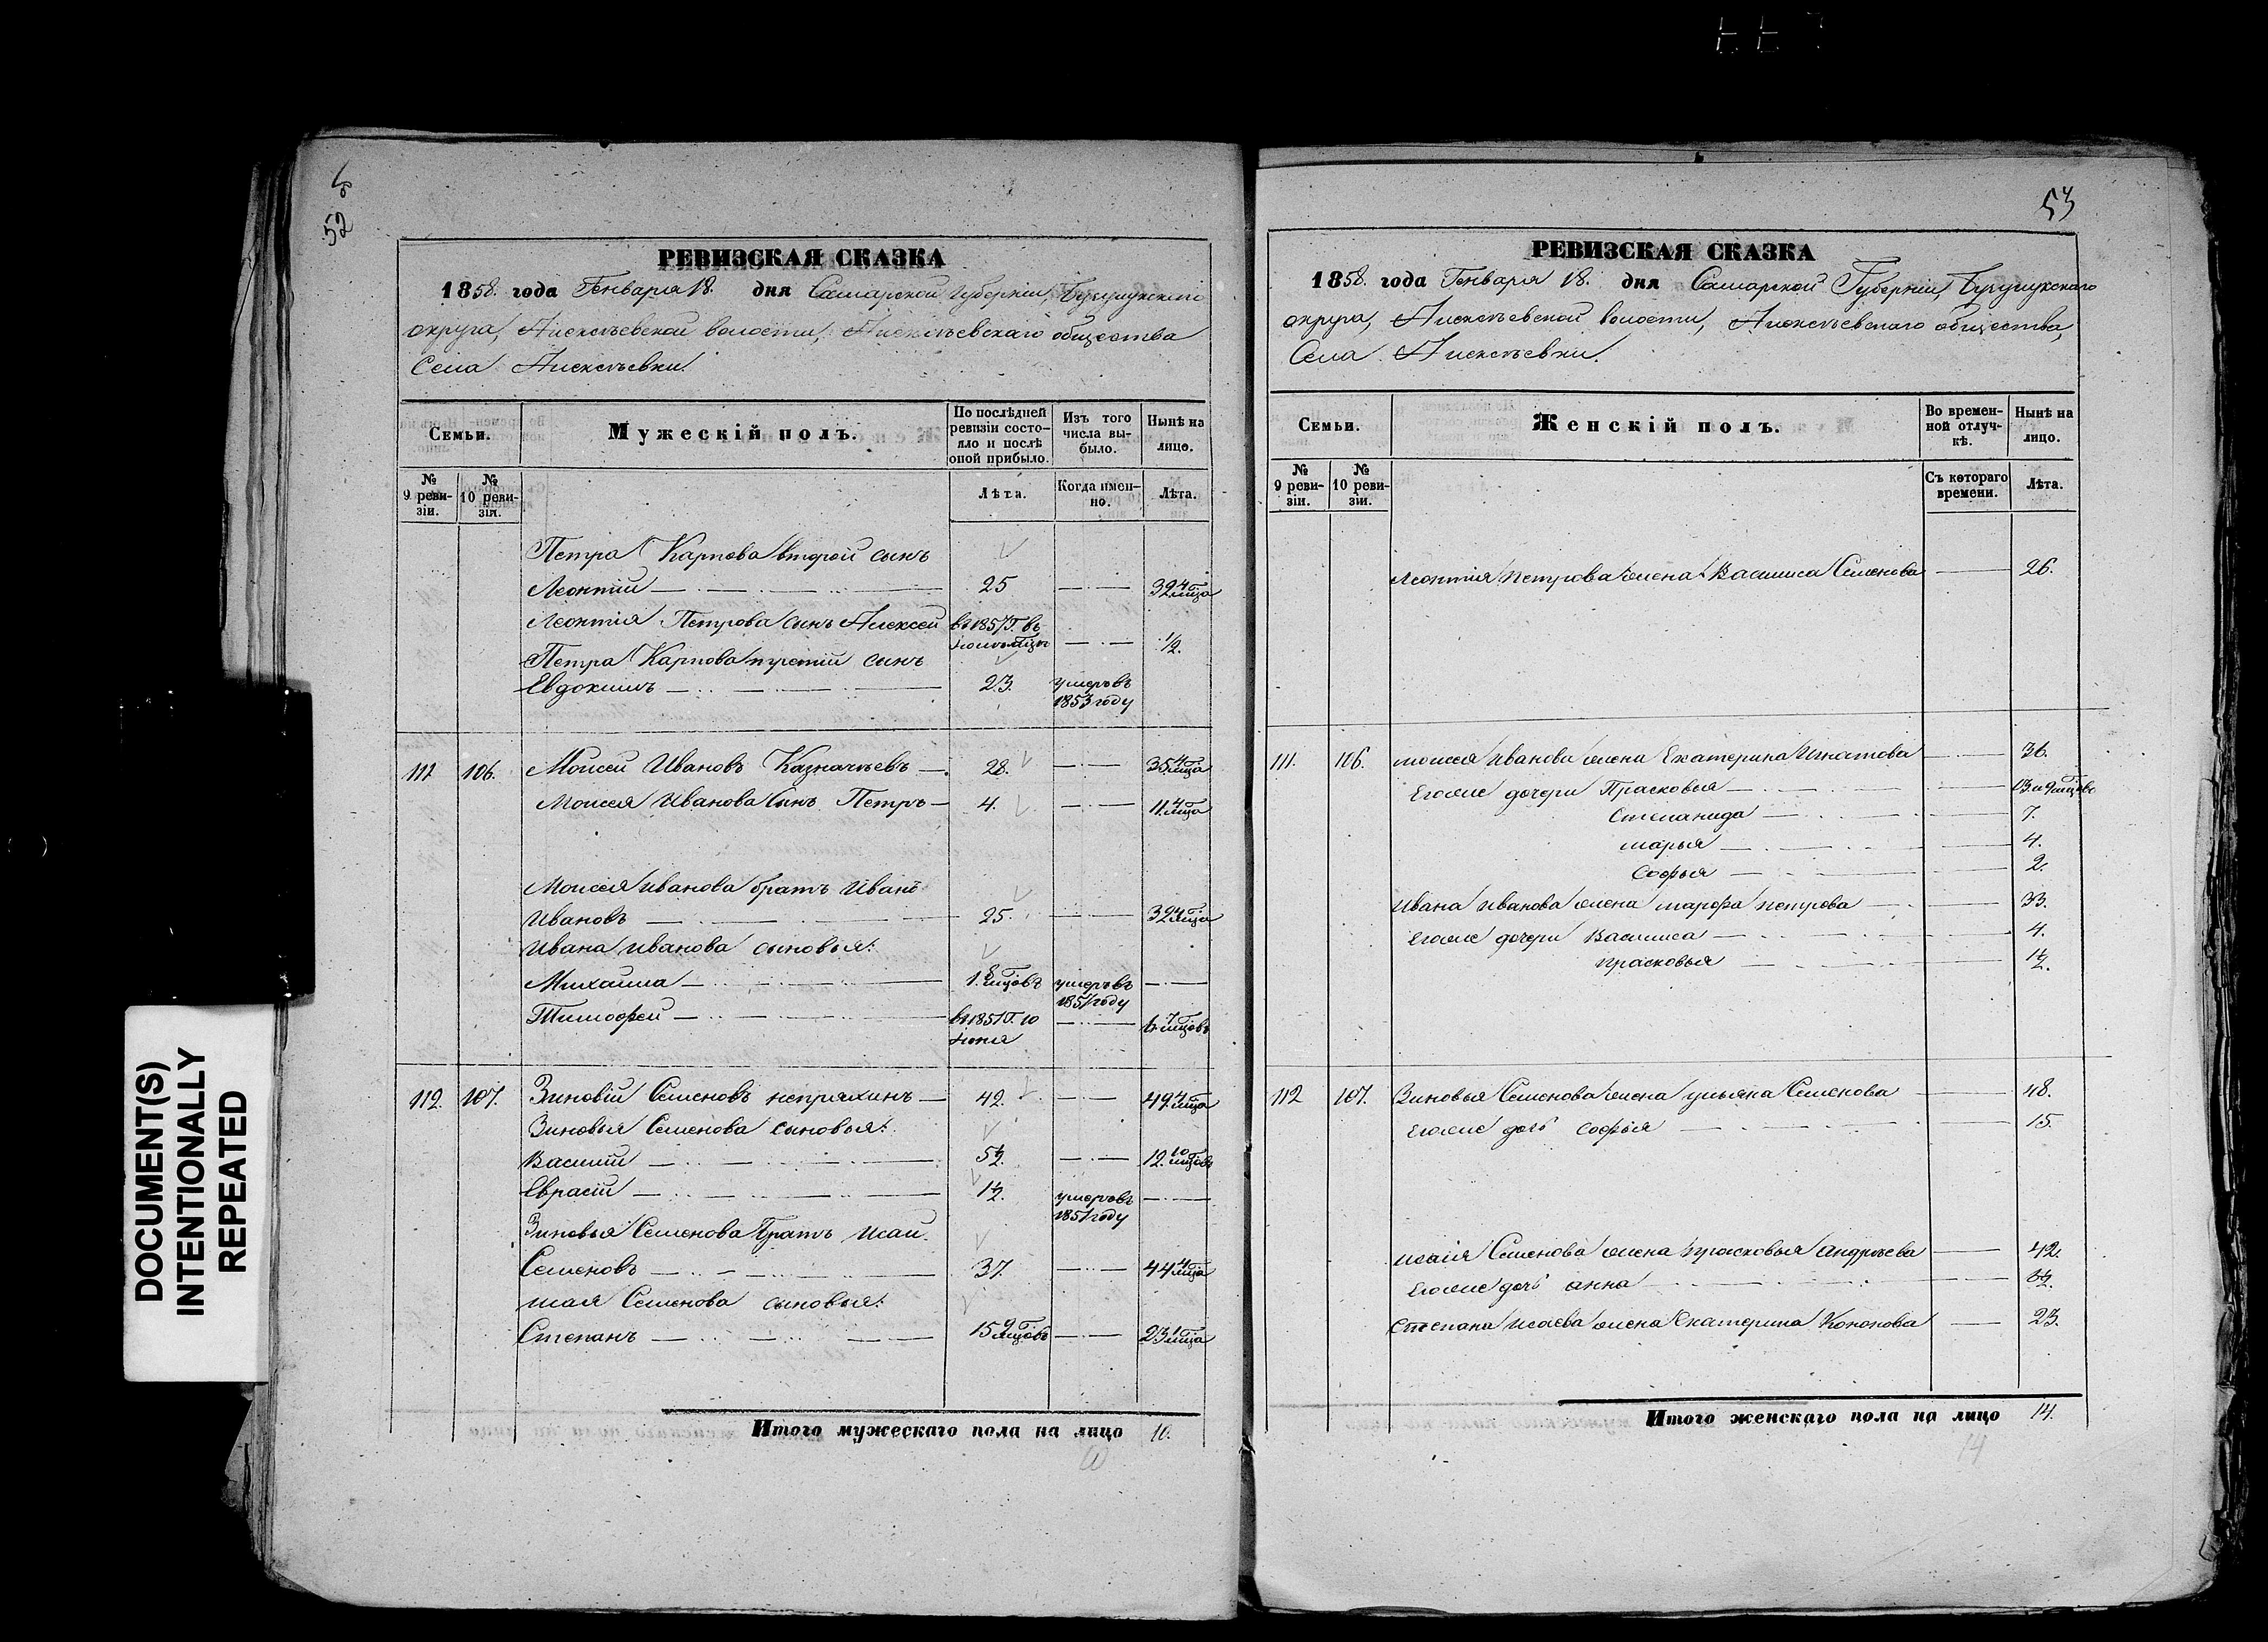 52
РЕВИЗСКАЯ СКАЗКА
1858. года Генваря 18. дня Самарской Губерніи, Бузулукскаго
округа, Алексѣевской волости, Алексѣевскаго общества
Села Алексѣевки.
Семьи.
Мужескій полъ.
По послѣдней ревизіи состояло и послѣ оной прибыло.
Изъ того числа выбыло.
Нынѣ на лицо.
№ 9 ревизіи.
№ 10 ревизіи.
Лѣта.
Когда именно.
Лѣта.
Петра Карпова второй сынъ
Леонтій 25 32 4 м-ца
Леонтія Петрова сынъ Алексей въ 1857 Г. въ
½.
Петра Карпова третій сынъ
Евдокимъ 23. умеръ въ
1853 году
111 106. Моисей Ивановъ Казначѣевъ 28. 35 4 м-ца
Моисея Иванова Сынъ Петръ 4. 11. 4 м-ца
Моисея Иванова братъ Иванъ
Ивановъ 25. 32 4 м-ца
Ивана Иванова сыновья:
Михаила 1. 8 м-цовъ умеръ въ
1851 году
Тимофей въ 1851 Г. 10 6. 7 м-цовъ
Іюня
112. 107. Зиновій Семеновъ непряхинъ 42. 49 4 м-ца
Зиновья Семенова сыновья:
Василій 5½. 12. 10 м-цовъ
Еврасій 1½. умеръ въ
1851 году
Зиновья Семенова братъ Исай
Семеновъ 37. 44 4 м-ца
Исая Семенова сыновья:
Степанъ 15 9 м-цовъ 23 1 м-ца
Итого мужескаго пола на лицо 10.
10
53
РЕВИЗСКАЯ СКАЗКА
1858. года Генваря 18. дня Самарской Губерніи, Бузулукскаго
округа, Алексѣевской волости, Алексѣевскаго общества,
Села Алексѣевки.
Семьи.
Женскій полъ.
Во временной отлучкѣ.
Нынѣ на лицо.
№ 9 ревизіи.
№ 10 ревизіи.
Съ котораго времени.
Лѣта.
Леонтія Петрова жена Василиса Семенова 26.
111. 106. Моисея Иванова жена Екатерина Игнатова 36.
Егоже дочери Прасковья 13 и 9 м-цовъ
Степанида 7.
Марья 4.
Софья 2.
Ивана Иванова жена Марфа Петрова 33.
Егоже дочери Василиса 4.
Прасковья 1½.
112 107. Зиновья Семенова жена Ульяна Семенова 48.
Егоже дочь Софья 15.
Исаія Семенова жена Прасковья Андрѣева 42
Егоже дочь Анна
Степана Исаева жена Екатерина Кононова 23.
Итого женскаго пола на лицо 14.
14
DOCUMENT(S)
INTENTIONALLY
REPEATED